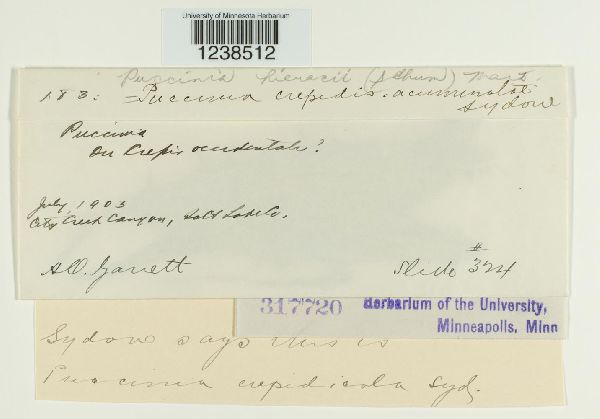 University of Minnesota Herbarium
1238512
Puccinia hieracii (Schum) Mart.
183. =Puccinia crepidis-acuminatae
Sydow
Puccinia
On Crepis occidentalis?
July, 1903
City Creek Canyon, Salt Lake Co.
A.O. Garrett
Slide # 324
317720
Herbarium of the University,
Minneapolis, Minn
Sydow says this is
Puccinia crepidicola Syd.